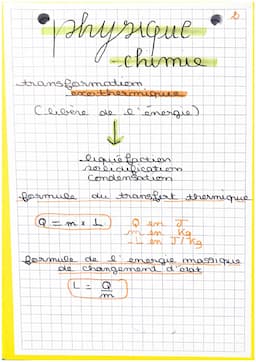 physique
chimie
transformation
exothermique
(libère de l'énergie)
liquéfaction
solidification
condensation
formule du transfert thermique
Q = m × L
Q en J
m en Kg
L en J/Kg
formule de l'energie massique
de changement d'état
L = Q/m